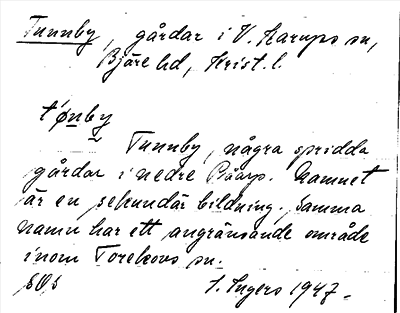 Tunnby, gårdar i V. Karups sn,
Bjäre hd, Krist. l.
tǿnby
Tunnby, några spridda
gårdar i nedre Påarp. Namnet
är en sekundär bildning. Samma
namn har ett angränsande område
inom Torekovs sn.
I. Ingers 1947.